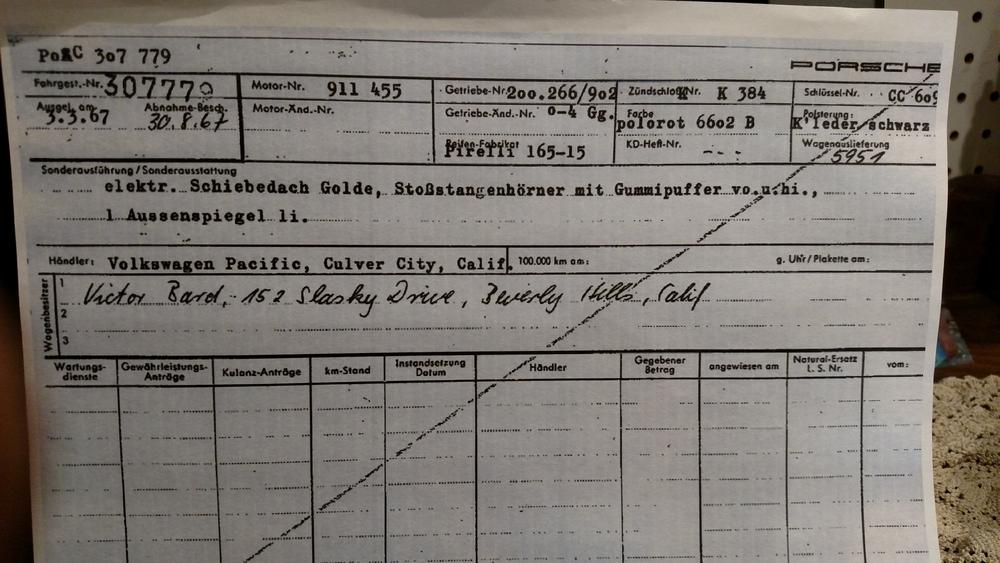 PoRC 307 779
PORSCHE
Fahrgest.-Nr. 307779 Motor-Nr. 911 455 Getriebe-Nr. 200.266/902 Zündschloß Nr. K 384 Schlüssel-Nr. CC 609
Ausgel. am 3.3.67 Abnahme-Besch. 30.8.67 Motor-Änd.-Nr. Getriebe-Änd.-Nr. 0-4 Gg. Farbe polorot 6602 B Polsterung: K'leder schwarz
Reifen-Fabrikat Pirelli 165-15 KD-Heft-Nr. --- Wagenauslieferung 5951
Sonderausführung / Sonderausstattung
elektr. Schiebedach Golde, Stoßstangenhörner mit Gummipuffer vo.u.hi.,
1 Aussenspiegel li.
Händler: Volkswagen Pacific, Culver City, Calif. 100.000 km am: g. Uhr / Plakette am:
Wagenbesitzer
1 Victor Bard, 152 Slasky Drive, Beverly Hills, Calif
2
3
Wartungs-dienste Gewährleistungs-Anträge Kulanz-Anträge km-Stand Instandsetzung Datum Händler Gegebener Betrag angewiesen am Natural-Ersatz L. S. Nr. vom: